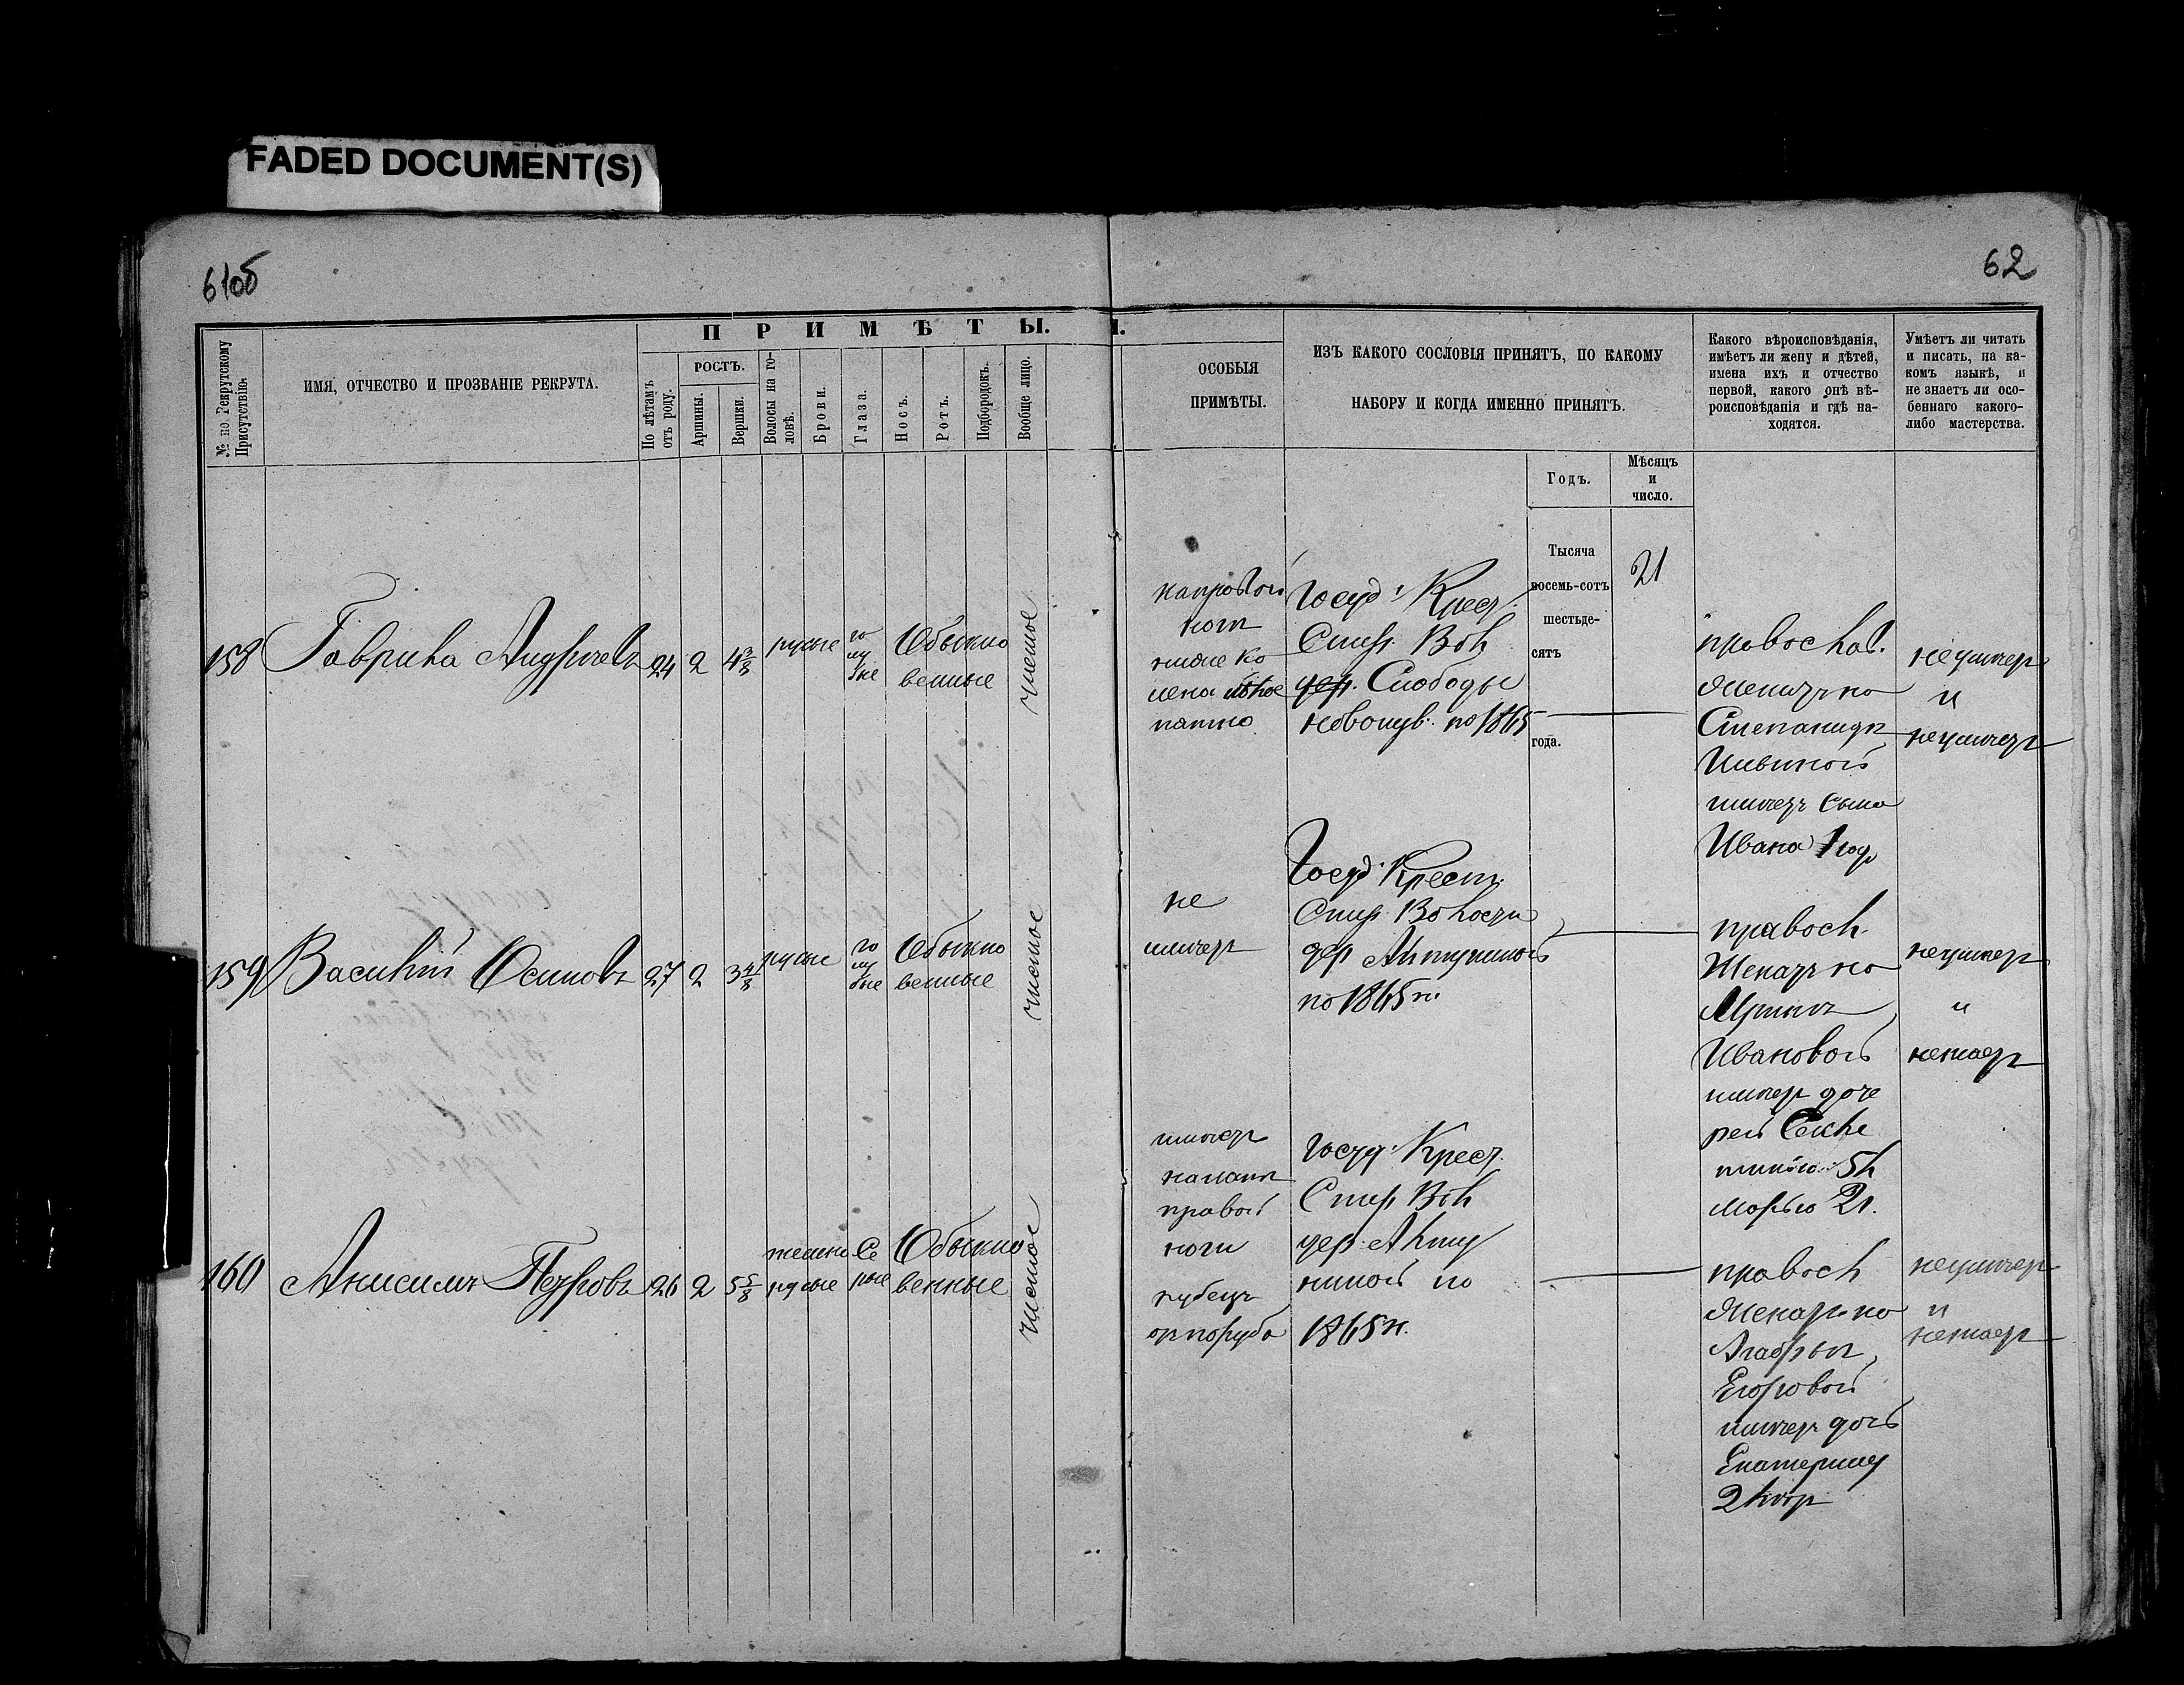 FADED DOCUMENT(S)
61об
62
ПРИМѢТЫ.
№ по Рекрутскому Присутствію.
ИМЯ, ОТЧЕСТВО И ПРОЗВАНІЕ РЕКРУТА.
По лѣтамъ отъ роду.
РОСТЪ.
Аршины.
Вершки.
Волосы на головѣ.
Брови.
Глаза.
Носъ.
Ротъ.
Подбородокъ.
Вообще лицо.
ОСОБЫЯ
ПРИМѢТЫ.
ИЗЪ КАКОГО СОСЛОВІЯ ПРИНЯТЪ, ПО КАКОМУ
НАБОРУ И КОГДА ИМЕННО ПРИНЯТЪ.
Годъ.
Мѣсяцъ
и
число.
Какого вѣроисповѣданія,
имѣетъ ли жену и дѣтей,
имена ихъ и отчество
первой, какого онѣ вѣ-
роисповѣданія и гдѣ на-
ходятся.
Умѣетъ ли читать
и писать, на ка-
комъ языкѣ, и
не знаетъ ли осо-
беннаго какого-
либо мастерства.
Тысяча
восемь-сотъ
шестьде-
сятъ
года.
21
158 Гаврила Андреевъ 24 2 4 3/8
русые
го
лу
бые
Обыкно
венные
чистое
на правой
ноги
ниже ко
лена
пятно
Госуд. Крест.
Спир. Вол
дер. Слободы
по 1865
православ.
Женатъ на
Степаниде
имеетъ сына
Ивана 1 год
неумеет
и
159 Василій Осиповъ 27 2 3 4/8
русые
го
лу
бые
Обыкно
венные
чистое
не
имеет
Госуд. Крест.
Спир. Волости
дер
по 1865 г.
правосл.
Женатъ на
Ивановой
имеет доче
рей
5 л
Марью 2 г.
неумеет
и
незнает
160 Анисимъ Петровъ 26 2 5 5/8
темно
русые
Се
рые
Обыкно
венные
чистое
имеет
правой
ноги
рубецъ
от поруба
Госуд. Крест.
Спир Вол
дер.
по
1865 г.
правосл
Женат на
Егоровой
имеет дочь
Екатерину
неумеет
и
незнает